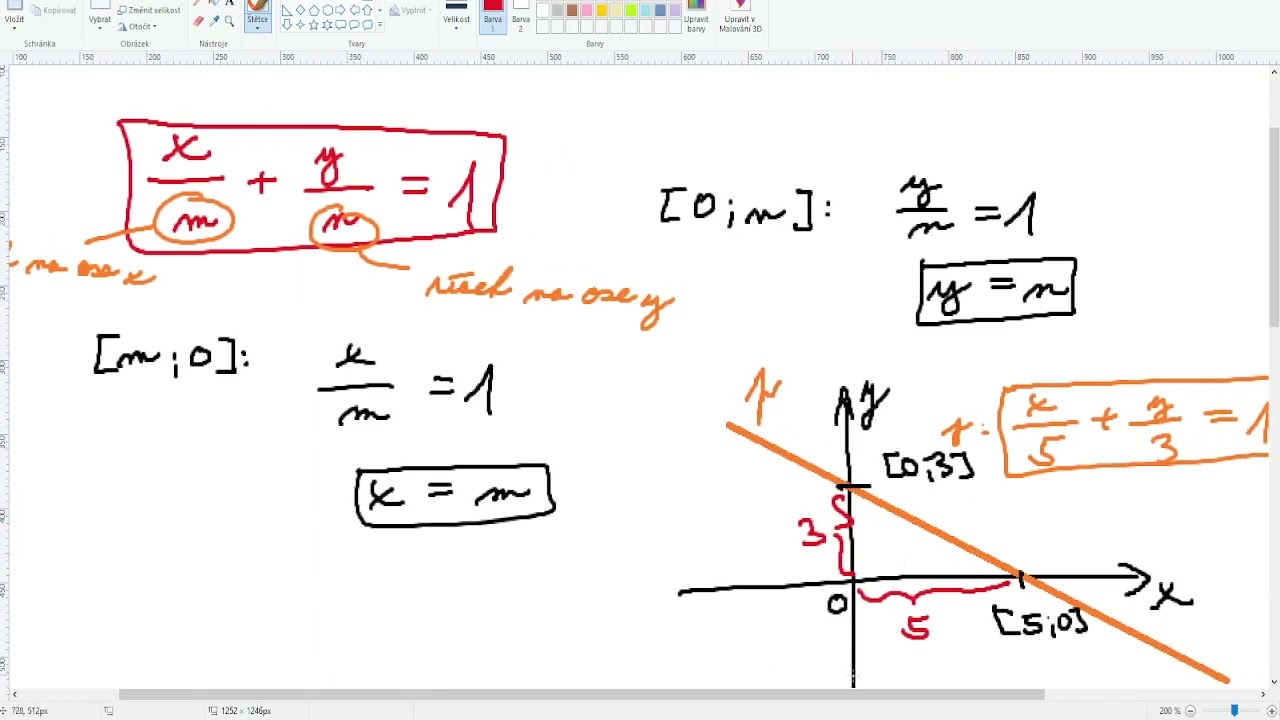 Vložit Kopírovat Vybrat Změnit velikost Otočit A Štětce Vyplnit Velikost Barva 1 Barva 2 Upravit barvy Upravit v Malování 3D
Schránka Obrázek Nástroje Tvary Barvy
100 150 200 250 300 350 400 450 500 550 600 650 700 750 800 850 900 950 1000
x/m + y/n = 1
na ose x
úsek na ose y
[m;0]: x/m = 1
x = m
[0;n]: y/n = 1
y = n
p
y
p: x/5 + y/3 = 1
[0;3]
3
0
5
[5;0]
x
728, 512px
1252 × 1246px
200 %